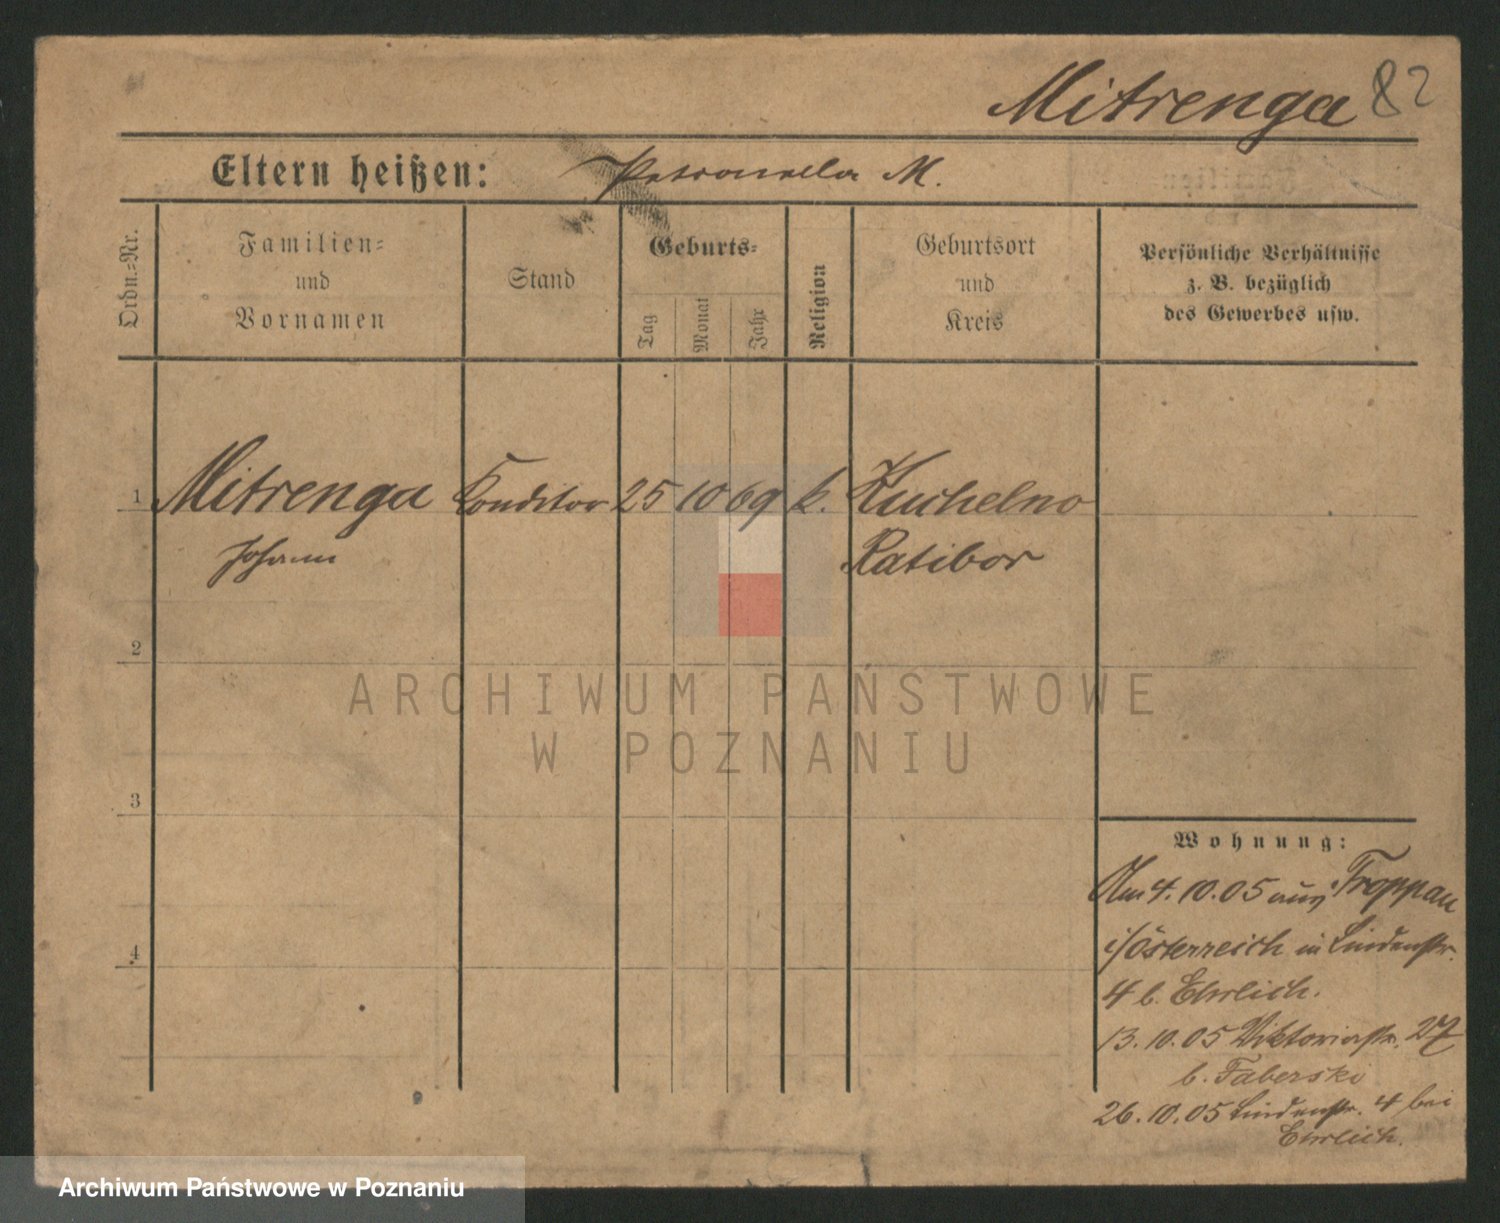 Mitrenga 82
Eltern heißen: Petronella M.
Ordn.=Nr.
Familien=
und
Vornamen
Stand
Geburts=
Tag
Monat
Jahr
Religion
Geburtsort
und
Kreis
Persönliche Verhältnisse
z. B. bezüglich
des Gewerbes usw.
1 Mitrenga Konditor 25 10 69 k. Kuchelno
Johann Ratibor
2
ARCHIWUM PAŃSTWOWE
W POZNANIU
3
Wohnung:
Am 4.10.05 aus Troppau
i/Österreich in Lindenstr.
4
4 b. Ehrlich.
13.10.05 Viktoriastr. 27
b. Faberski
26.10.05 Lindenstr. 4 bei
Ehrlich.
Archiwum Państwowe w Poznaniu